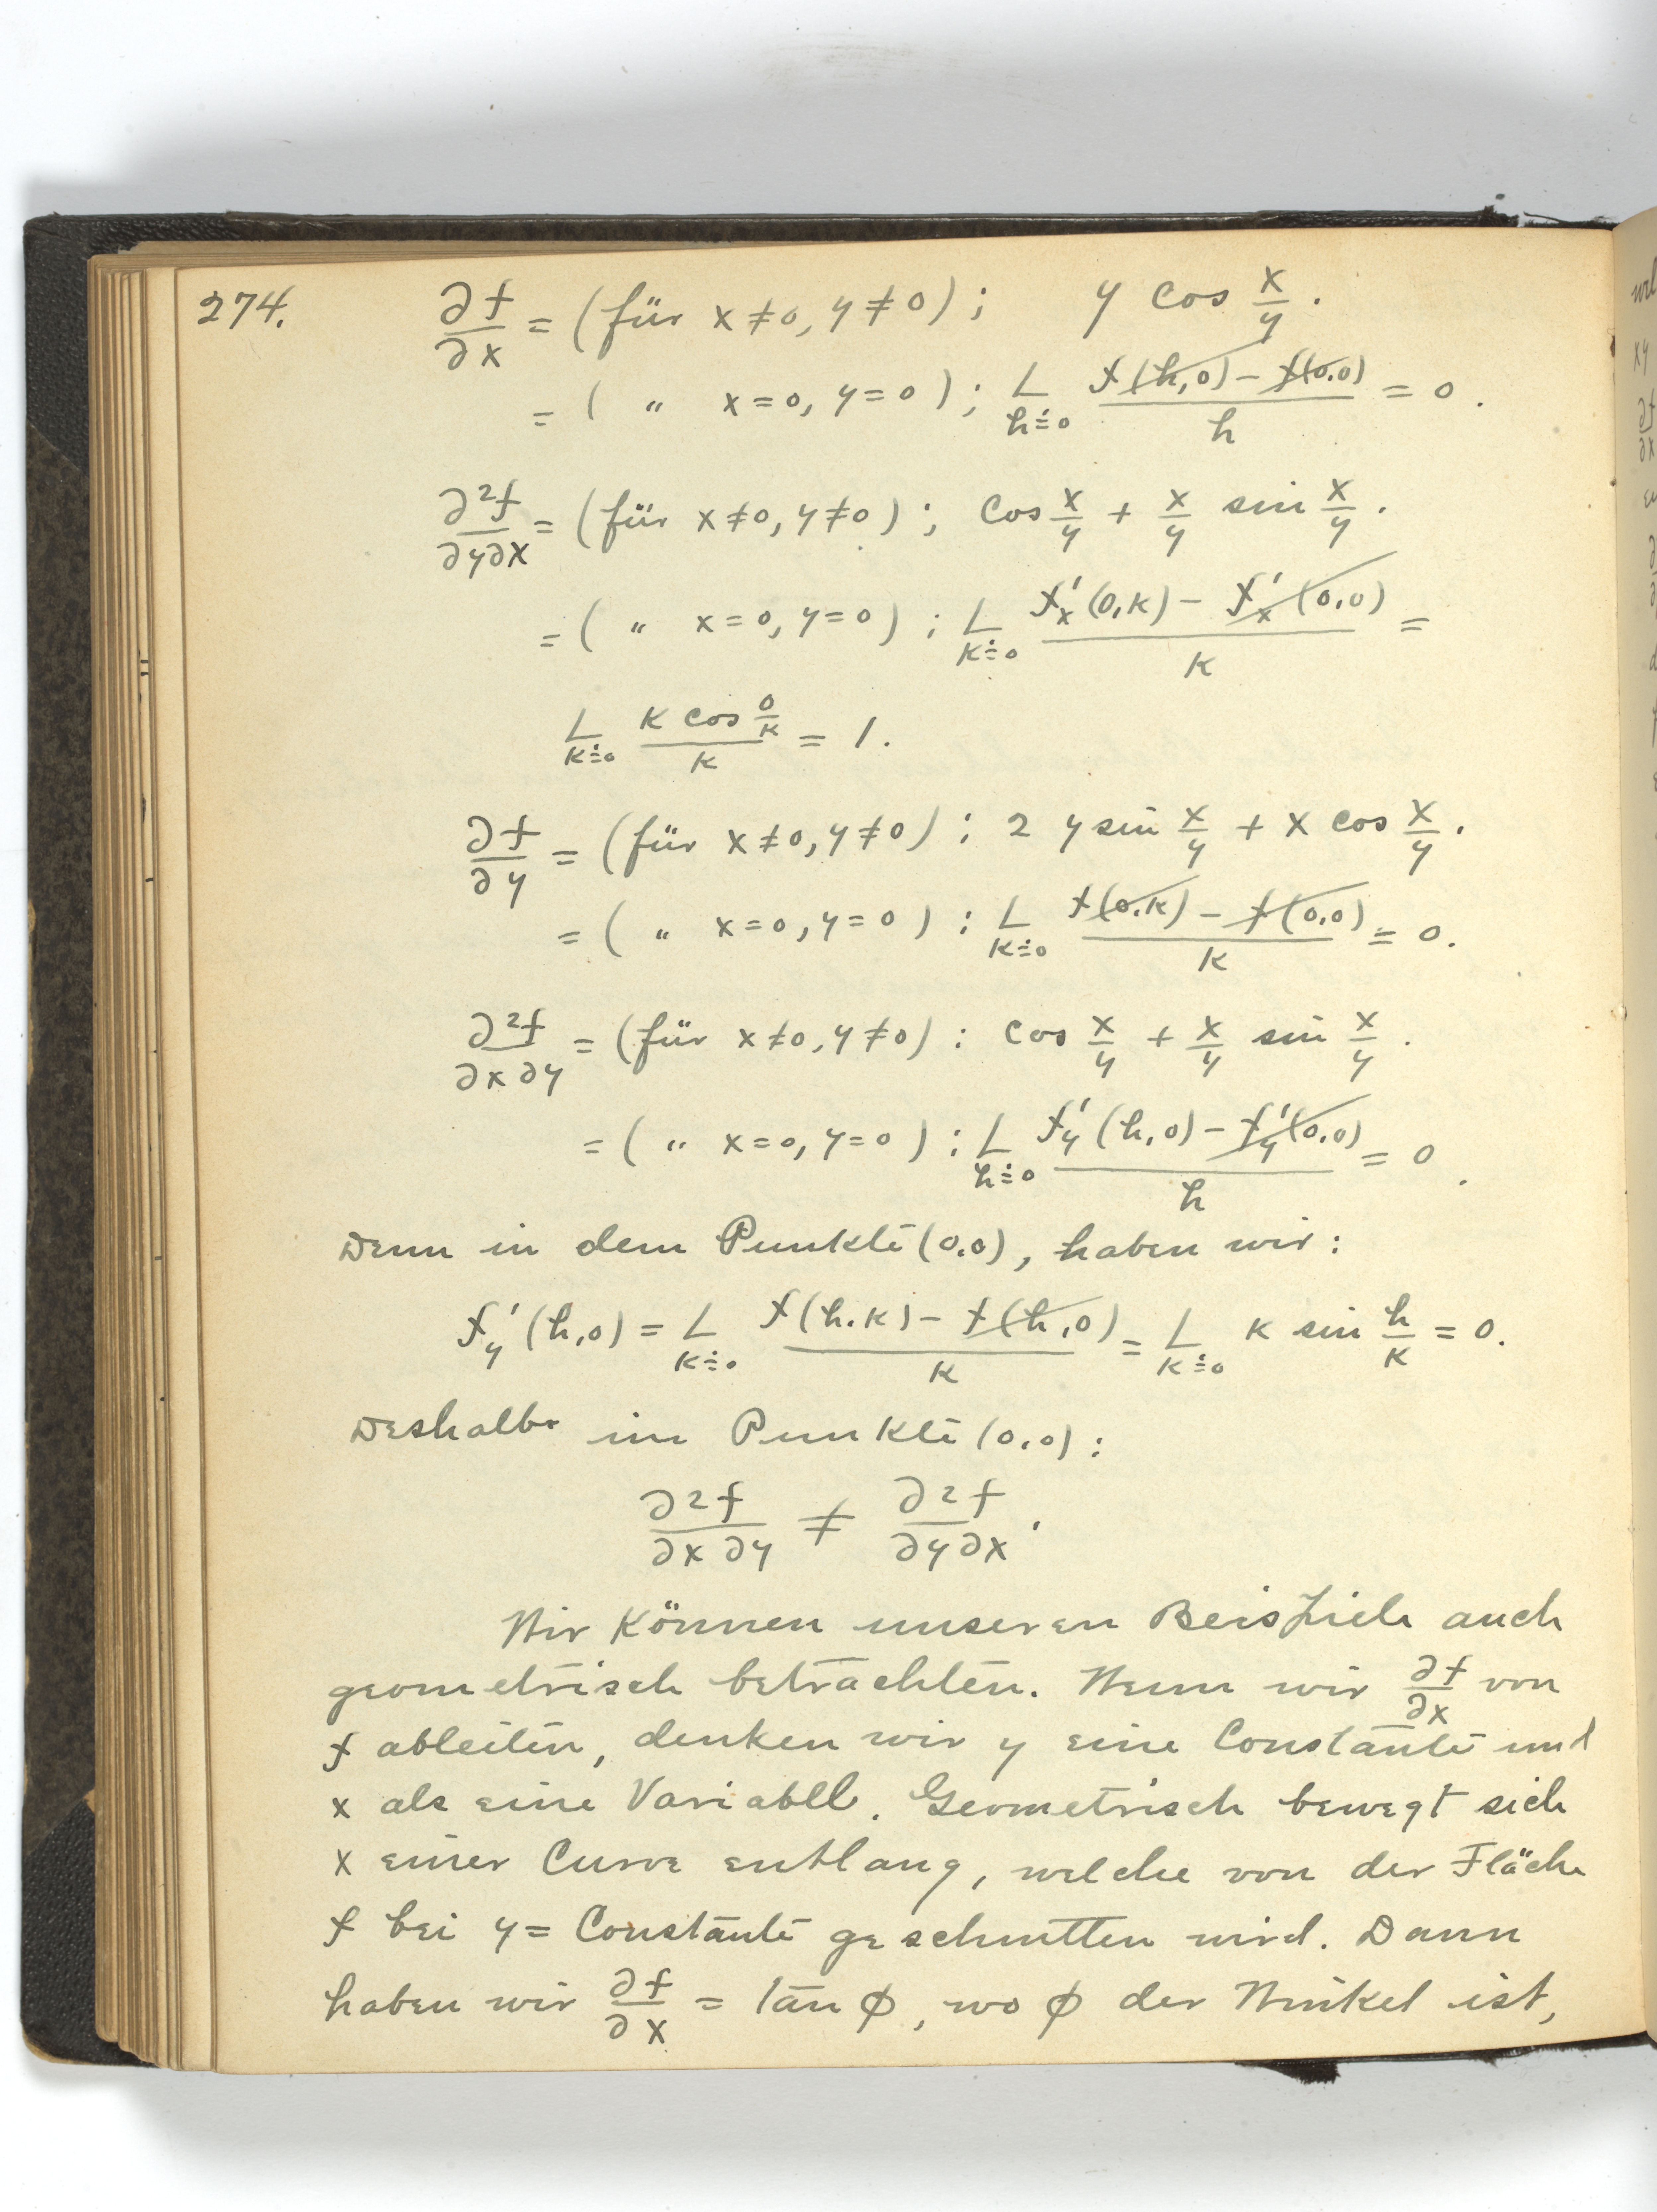 274. ∂f/∂x = (für x≠0, y≠0); y cos x/y.
= ( " x=0, y=0 ); L h≐0 f(h,0) − f(0,0) / h = 0.
∂²f/∂y∂x = (für x≠0, y≠0); cos x/y + x/y sin x/y.
= ( " x=0, y=0 ); L k≐0 f'x(0,k) − f'x(0,0) / k =
L k≐0 k cos 0/k / k = 1.
∂f/∂y = (für x≠0, y≠0): 2 y sin x/y + x cos x/y.
= ( " x=0, y=0 ): L k≐0 f(0,k) − f(0,0) / k = 0.
∂²f/∂x∂y = (für x≠0, y≠0): cos x/y + x/y sin x/y.
= ( " x=0, y=0 ): L h≐0 f'y(h,0) − f'y(0,0) / h = 0.
Denn in dem Punkte (0,0), haben wir:
f'y(h,0) = L k≐0 f(h,k) − f(h,0) / k = L k≐0 k sin h/k = 0.
Deshalb im Punkte (0,0):
∂²f/∂x∂y ≠ ∂²f/∂y∂x.
Wir können unseren Beispiele auch
geometrisch betrachten. Wenn wir ∂f/∂x von
f ableiten, denken wir y eine Constante und
x als eine Variabll. Geometrisch bewegt sich
x einer Curve entlang, welche von der Fläche
f bei y = Constante geschnitten wird. Dann
haben wir ∂f/∂x = tan φ, wo φ der Winkel ist,